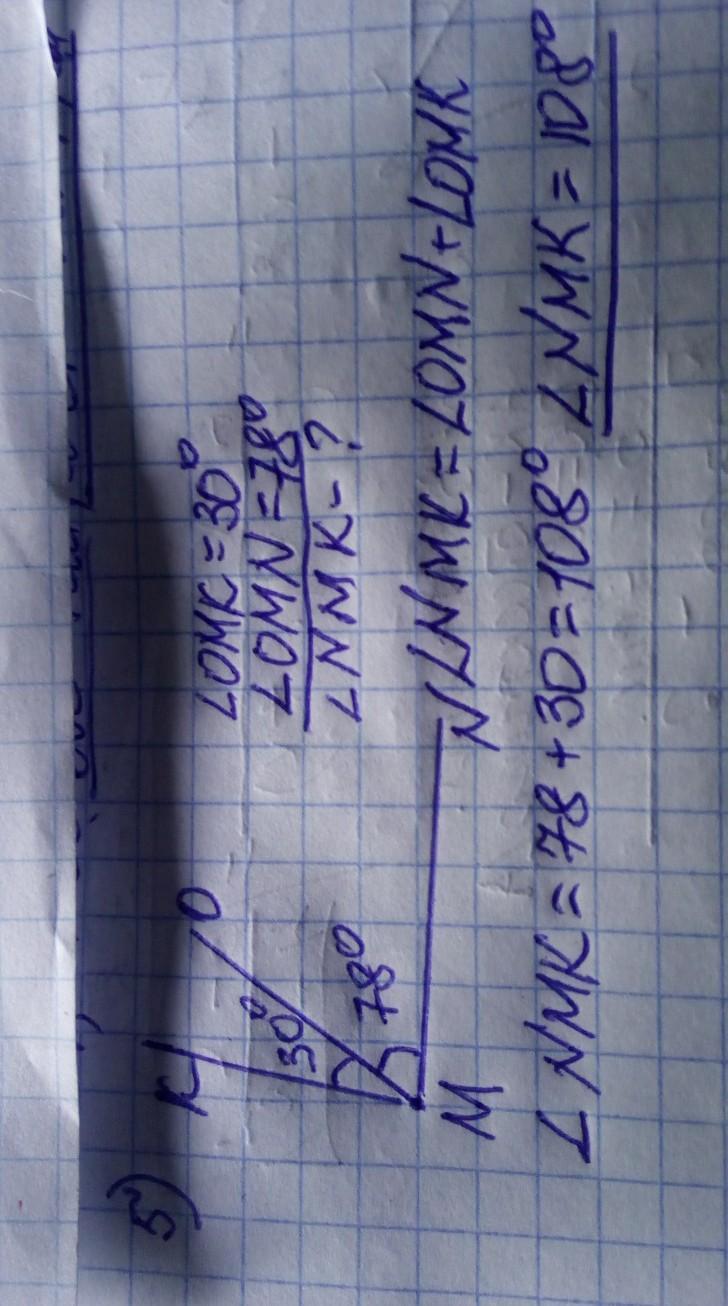 5)
K
O
30°
78°
M
N
∠OMK = 30°
∠OMN = 78°
∠NMK - ?
∠NMK = ∠OMN + ∠OMK
∠NMK = 78 + 30 = 108° ∠NMK = 108°